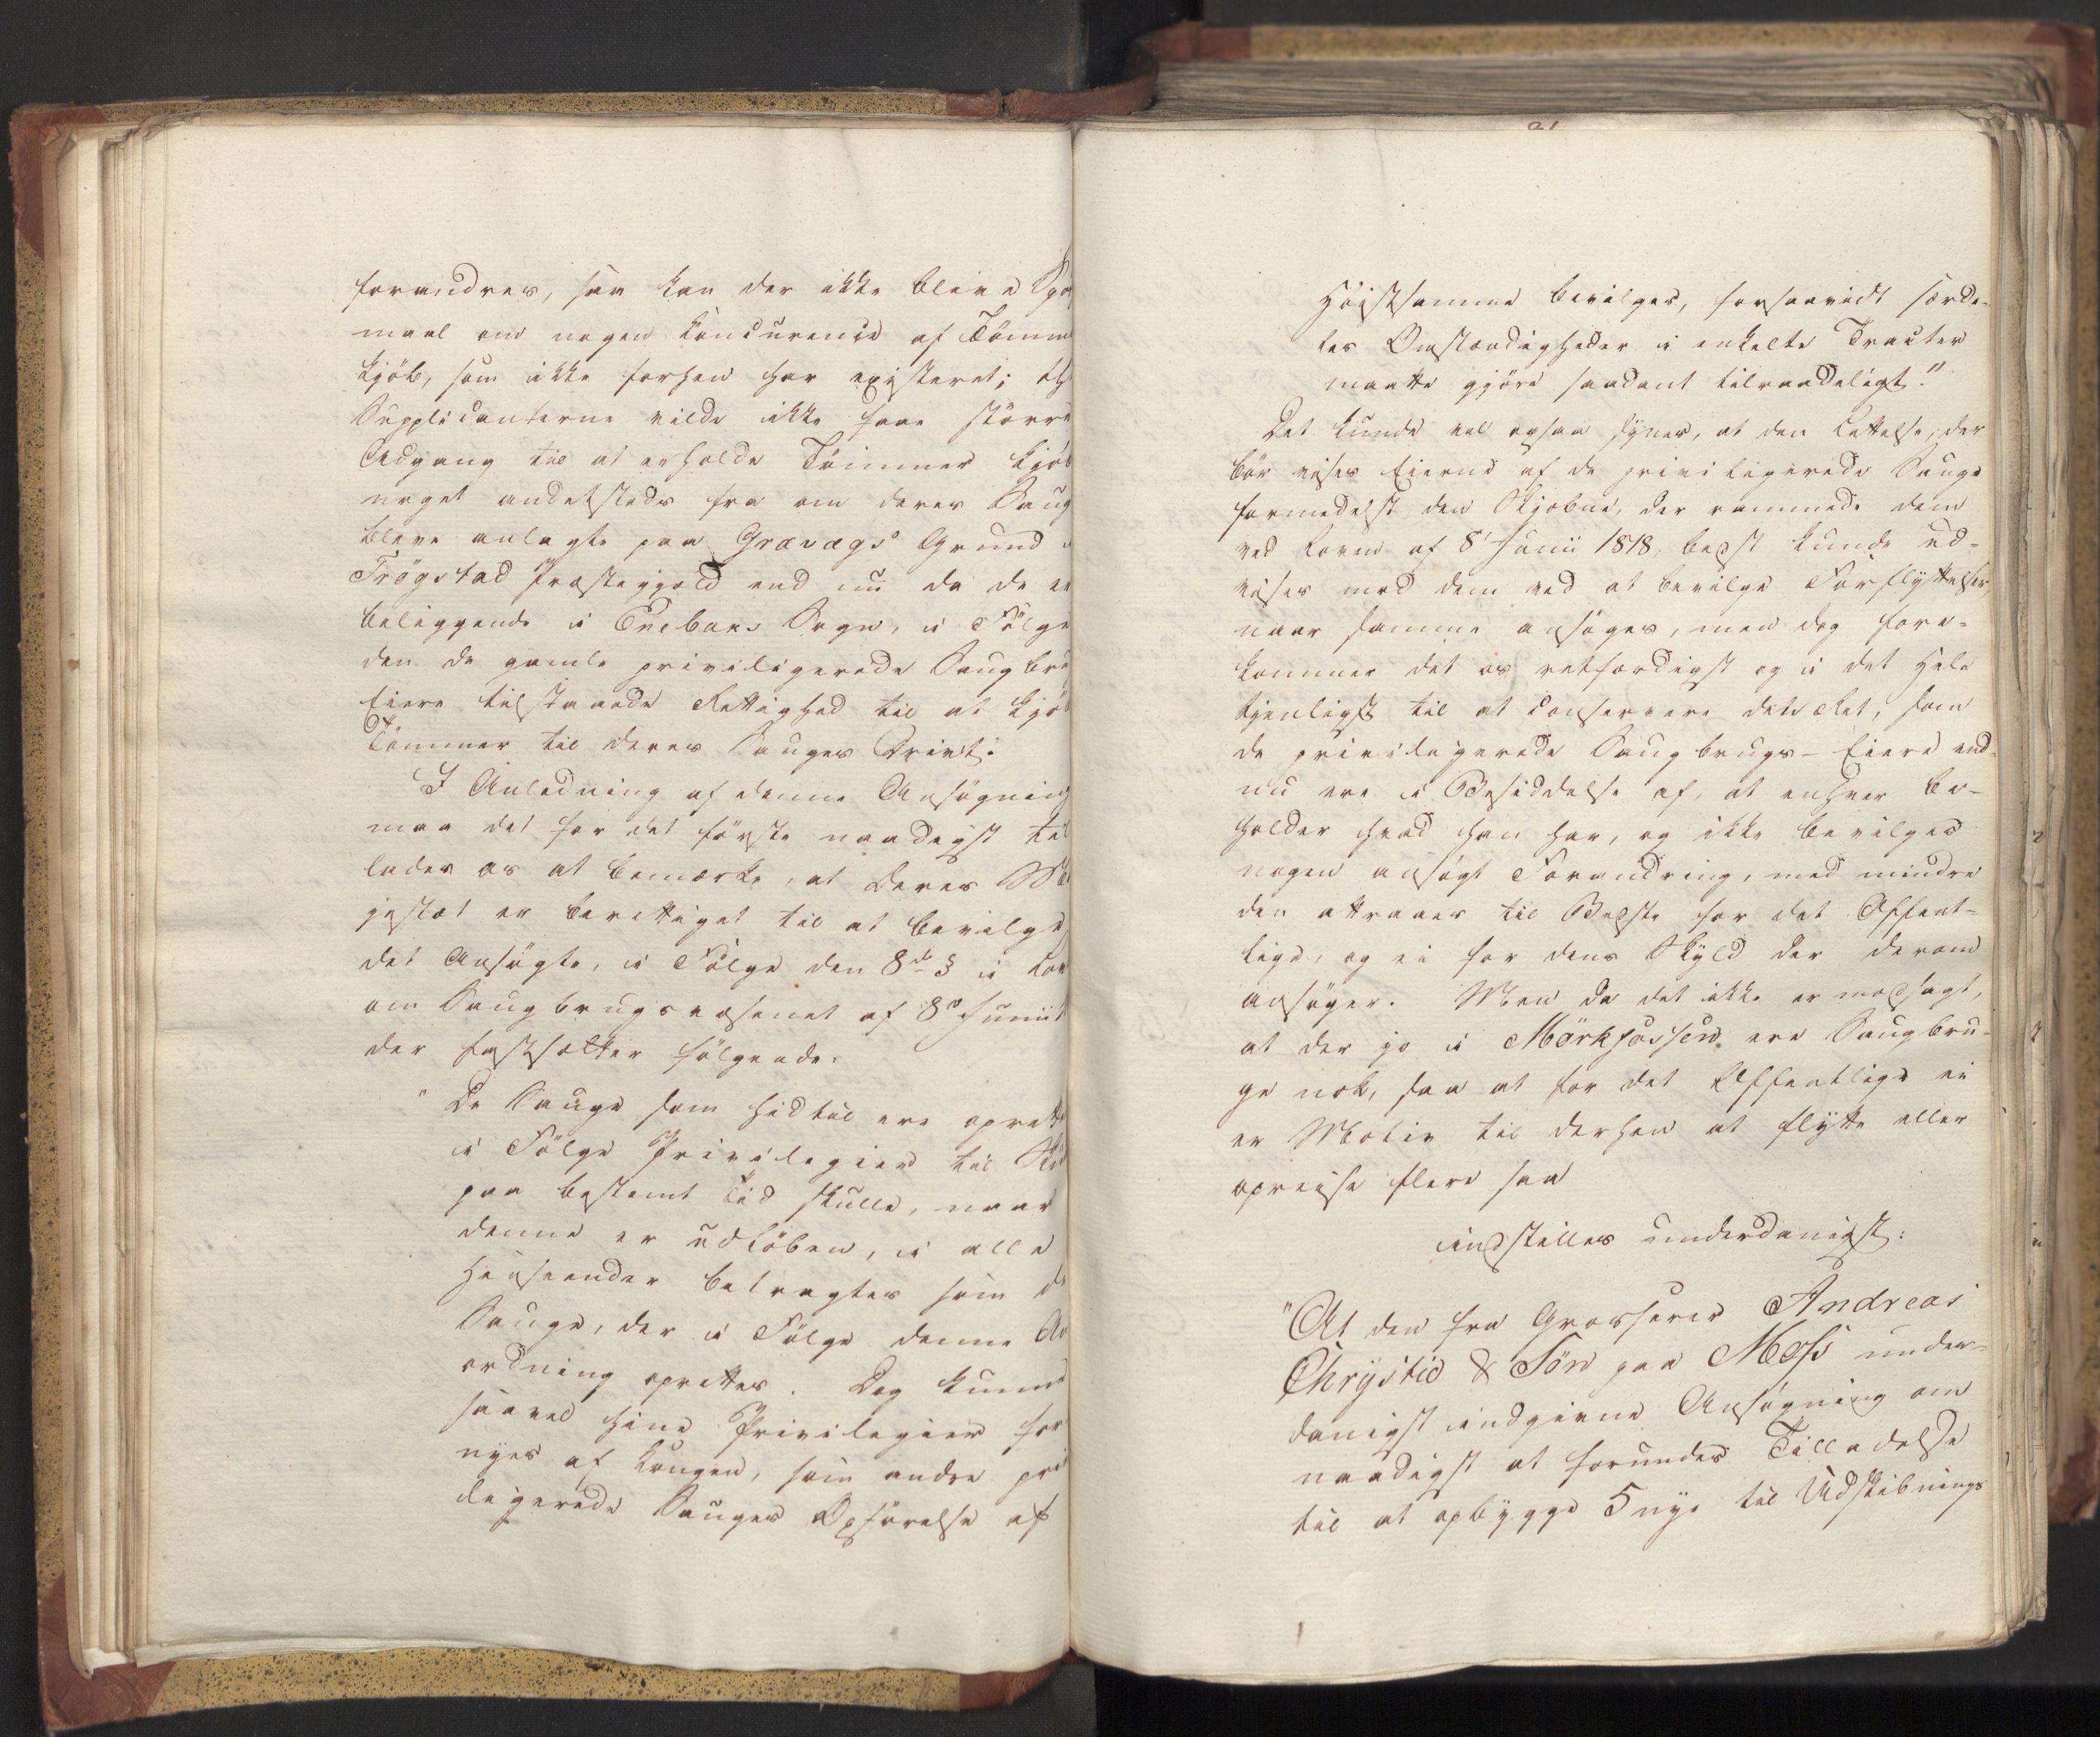 forandres, saa kan der ikke blive Spørs
maal om nogen Concurence af Tömmer
kjöb, som ikke forhen har existeret; th
Supplicanterne vilde ikke faae större
Adgang til at erholde Tömmer kjöb
noget andetsteds fra om deres Saug
bleve anlagte paa Grævægs Grund i
Trögstad Præstegjæld end nu da de er
beliggende i Enebaks Sogn, i Fölge
den de gamle priviligerede Saugbru
Eiere tilstaaede Rettighed til at kjöb
Tömmer til deres Sauges Drivt.
I Anledning af denne Ansögning
maa det for det förste naadigst til
lades os at bemærke, at Deres Ma
jestæt er berettiget til at bevilge
det Ansögte, i Fölge den 8de § i Lov
om Saugbrugsvæsenet af 8de Junii
der fastsætter fölgende:
"De Sauge som hidtil ere oprett
i Fölge Privilegier til Skur
paa bestemt Tid skulle, naar
denne er udlöben, i alle
Henseender betragtes som de
Sauge, der i Fölge denne An
ordning oprettes. Dog kunne
saavel hine Privilegier for
nyes af Kongen, som andre pri
ligerede Sauges Opförelse af
21
Höistsamme bevilges, forsaavidt særde-
les Omstændigheder i enkelte Tracter
maatte gjöre saadant tilraadeligt."
Det kunde vel ogsaa synes, at den Lettelse, der
bör vises Eierne af de priviligerede Sauge
formedelst den Skjebne, der rammede dem
ved Loven af 8' Junii 1818, bedst kunde ud-
vises mod dem ved at bevilge Forflyttelser
naar samme ansöges, men dog fore-
kommer det os retfærdigst og i det Hele
tjenligst til at conservere det Ret, som
de priviligerede Saugbrugs-Eiere end-
nu ere i Besiddelse af, at enhver be-
holder hvad han har, og ikke bevilges
nogen ansögt Forandring, med mindre
den attraaes til Bedste for det Offent-
lige, og ei for dens Skyld der derom
ansöger. Men da det ikke er modsagt,
at der jo i Mörkfossen ere Saugbru-
ge nok, saa at for det Offentlige ei
er Motiv til derhen at flytte eller
opreise flere saa
indstilles underdanigst:
"At den fra Grosserer Andreas
Chrystie & Sön paa Moss under-
danigst indgivne Ansögning om
naadigst at forundes Tilladelse
til at opbygge 5 nye til Udskibnings